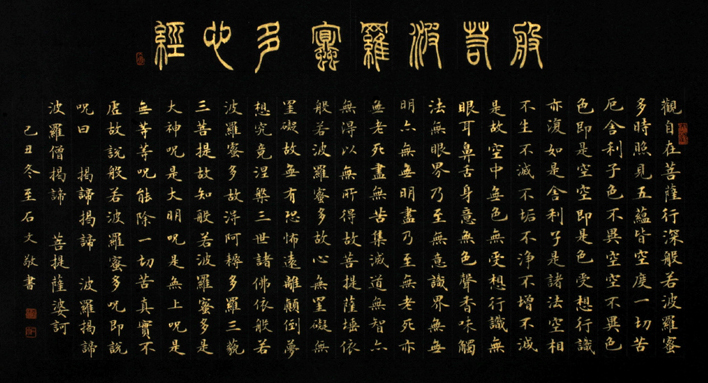 般若波羅蜜多心經
觀自在菩薩行深般若波羅蜜
多時照見五蘊皆空度一切苦
厄舍利子色不異空空不異色
色即是空空即是色受想行識
亦復如是舍利子是諸法空相
不生不滅不垢不淨不增不減
是故空中無色無受想行識無
眼耳鼻舌身意無色聲香味觸
法無眼界乃至無意識界無無
明亦無無明盡乃至無老死亦
無老死盡無苦集滅道無智亦
無得以無所得故菩提薩埵依
般若波羅蜜多故心無罣礙無
罣礙故無有恐怖遠離顛倒夢
想究竟涅槃三世諸佛依般若
波羅蜜多故得阿耨多羅三藐
三菩提故知般若波羅蜜多是
大神咒是大明咒是無上咒是
無等等咒能除一切苦真實不
虛故說般若波羅蜜多咒即說
咒曰 揭諦揭諦 波羅揭諦
波羅僧揭諦 菩提薩婆訶
己丑冬至石文敬書